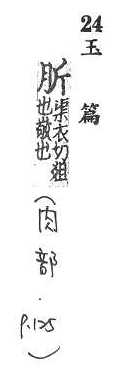 24玉篇
肵渠衣切俎
也敬也
(肉部.P.125)